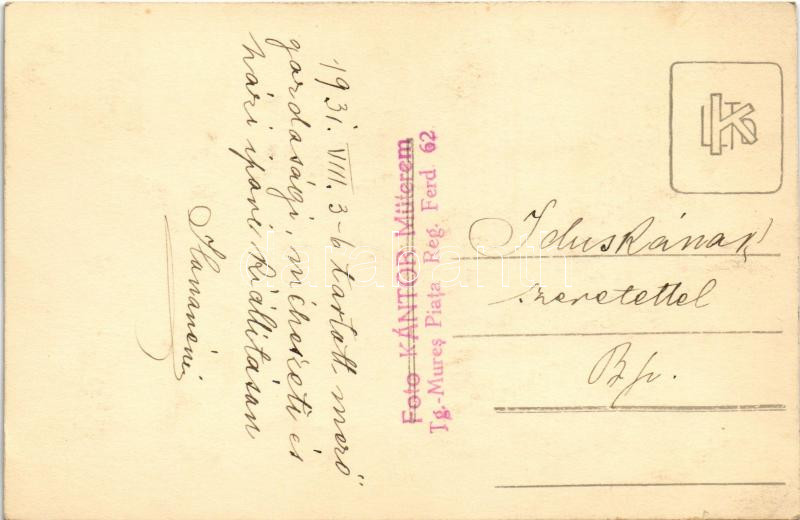 1931. VIII. 3-6 tartott mező
gazdasági, méhészeti és
házi ipari kiállításán
Foto KÁNTOR Műterem
Tg.-Mureș Piața Reg. Ferd. 62
Iduskának
szeretettel
Bp.
darabanth